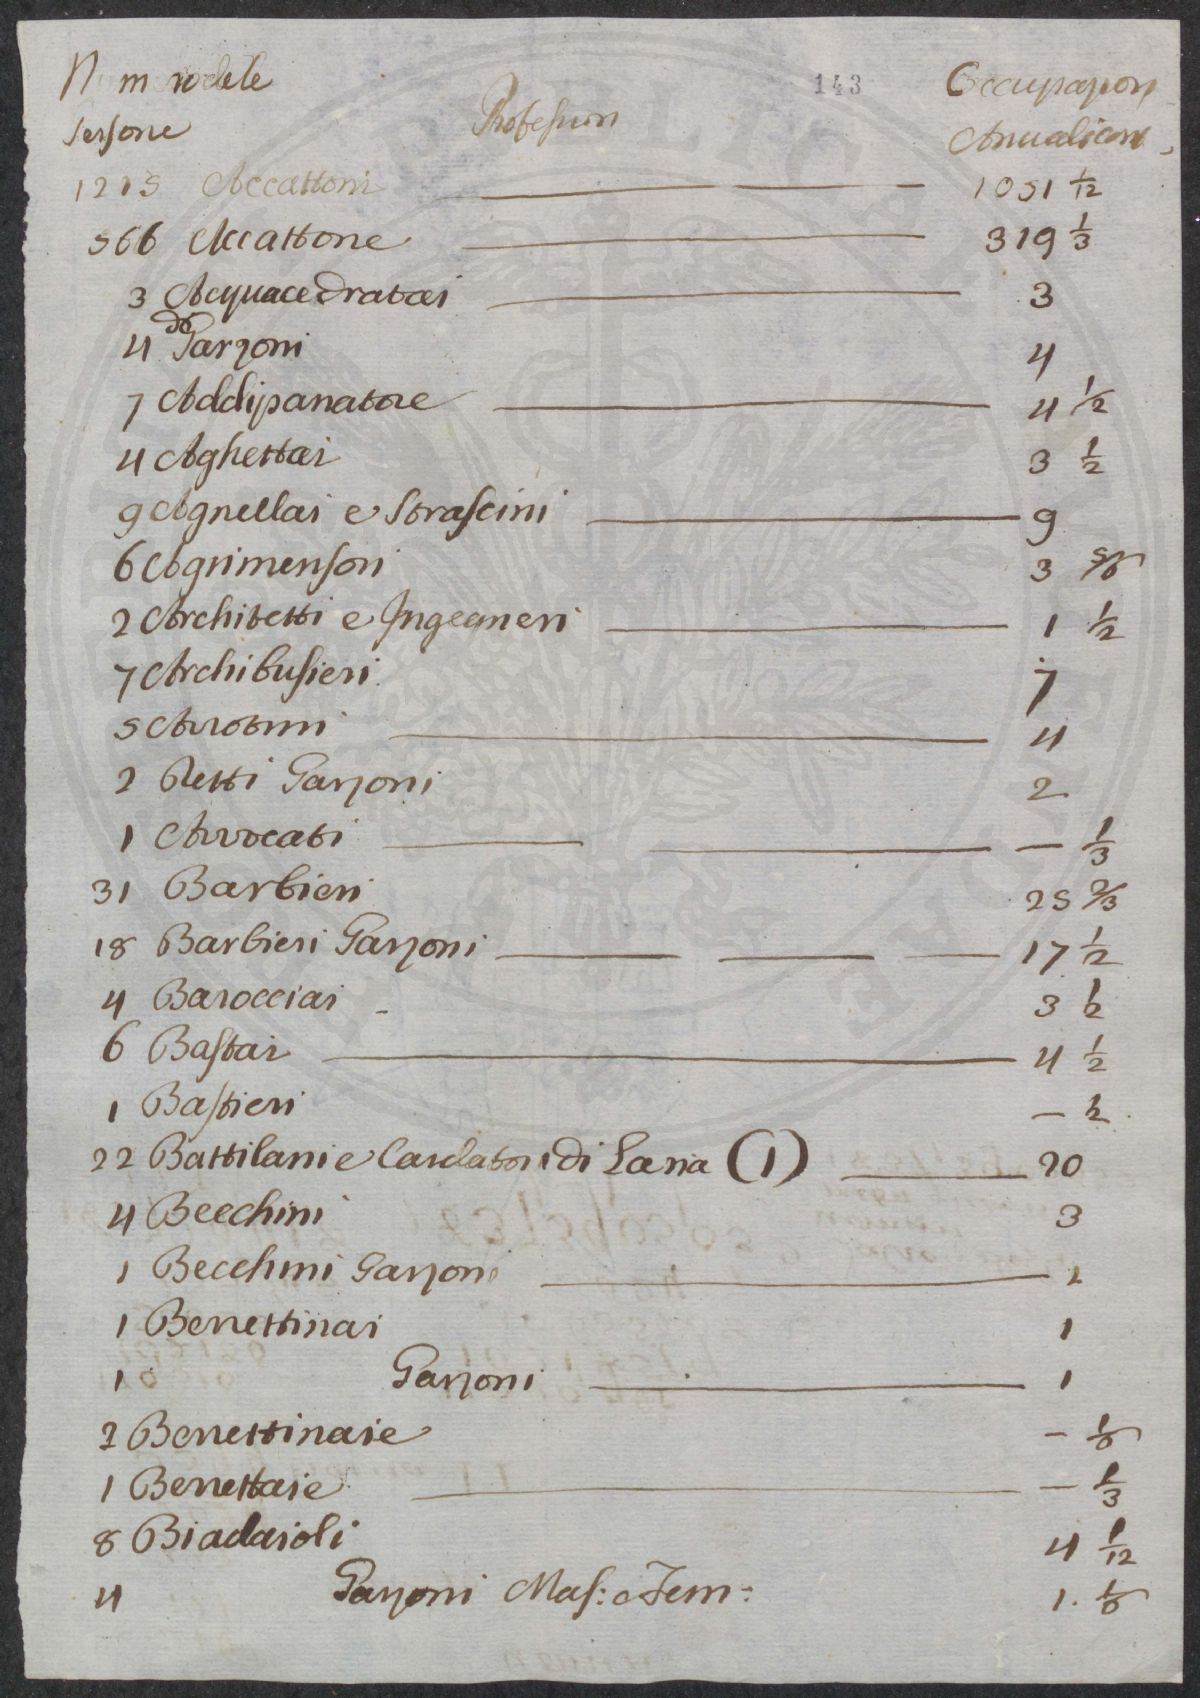 Num delle Professioni 143 Occupazioni
Persone Annualioni
1215 Accattoni 1051 1/12
566 Accattone 319 1/3
3 Acquacedratai 3
4 do Garzoni 4
7 Addipanatore 4 1/2
4 Aghettai 3 1/2
9 Agnellai e Strascini 9
6 Agrimensori 3 5/6
2 Architetti e Ingegneri 1 1/2
7 Archibusieri 7
5 Arrotini 4
2 Detti Garzoni 2
1 Avvocati — 1/3
31 Barbieri 25 2/3
18 Barbieri Garzoni 17 1/2
4 Barocciai 3 1/2
6 Bastai 4 1/2
1 Bastieri — 1/2
22 Battilani e Cardatori di Lana (1) 20
4 Becchini 3
1 Becchini Garzoni 1
1 Berrettinai 1
1 Garzoni 1
2 Berrettinaie — 1/6
1 Berrettaie — 1/3
8 Biadaioli 4 1/12
4 Garzoni Mas: e Fem: 1. 1/6